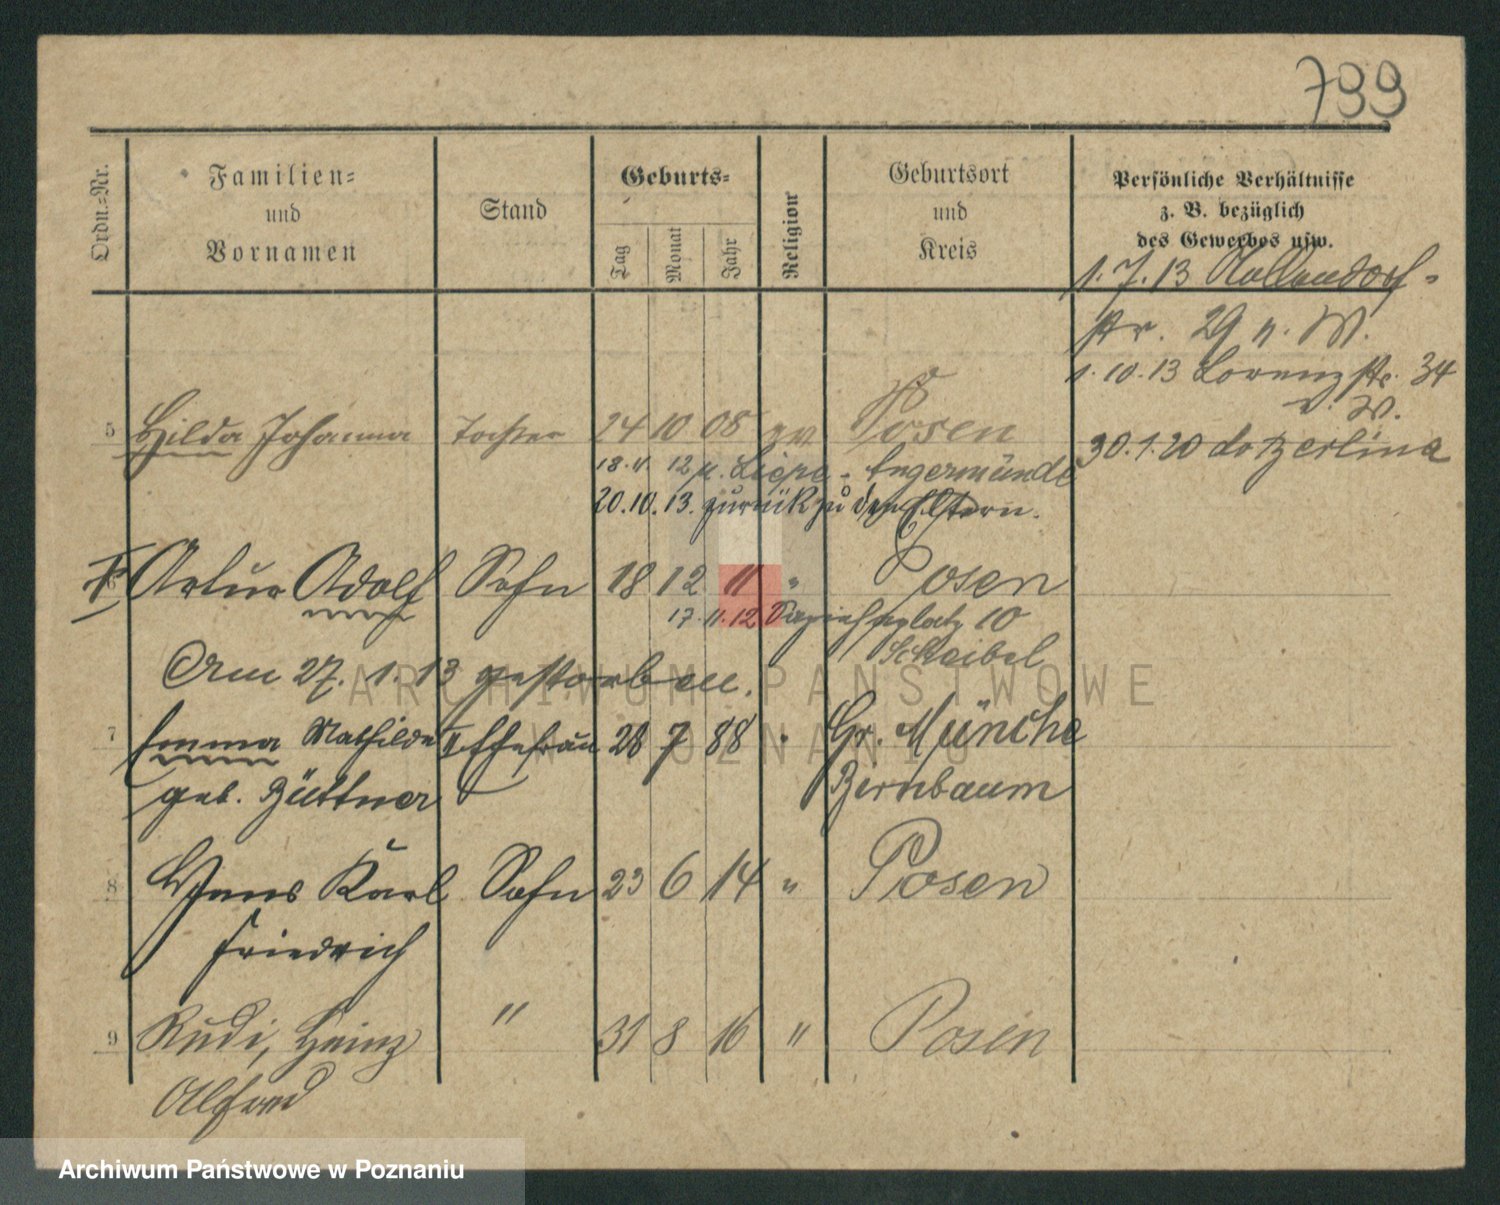 799
Ordn.=Nr.
Familien=
und
Vornamen
Stand
Geburts=
Tag
Monat
Jahr
Religion
Geburtsort
und
Kreis
Persönliche Verhältnisse
z. B. bezüglich
des Gewerbes usw.
1.7.13 Hollendorf-
str. 29 n. W.
1.10.13 Lorenzstr. 34
v. W.
30.1.20
5 Hilda Johanna Tochter 24 10 08 ev Posen
18.4.12 n. Liepe - Angermünde
20.10.13. zurück zu den Eltern.
6 Artur Adolf Sohn 18 12 11 " Posen
17.11.12 10
Scheibel
Am 27.1.13 gestorben.
7 Emma Mathilde II Ehefrau 28 7 88 " Gr. Münche
geb. Büttner Birnbaum
8 Hans Karl Sohn 23 6 14 " Posen
Friedrich
9 Rudi, Heinz " 31 8 16 " Posen
Alfred
ARCHIWUM PAŃSTWOWE
W POZNANIU
Archiwum Państwowe w Poznaniu